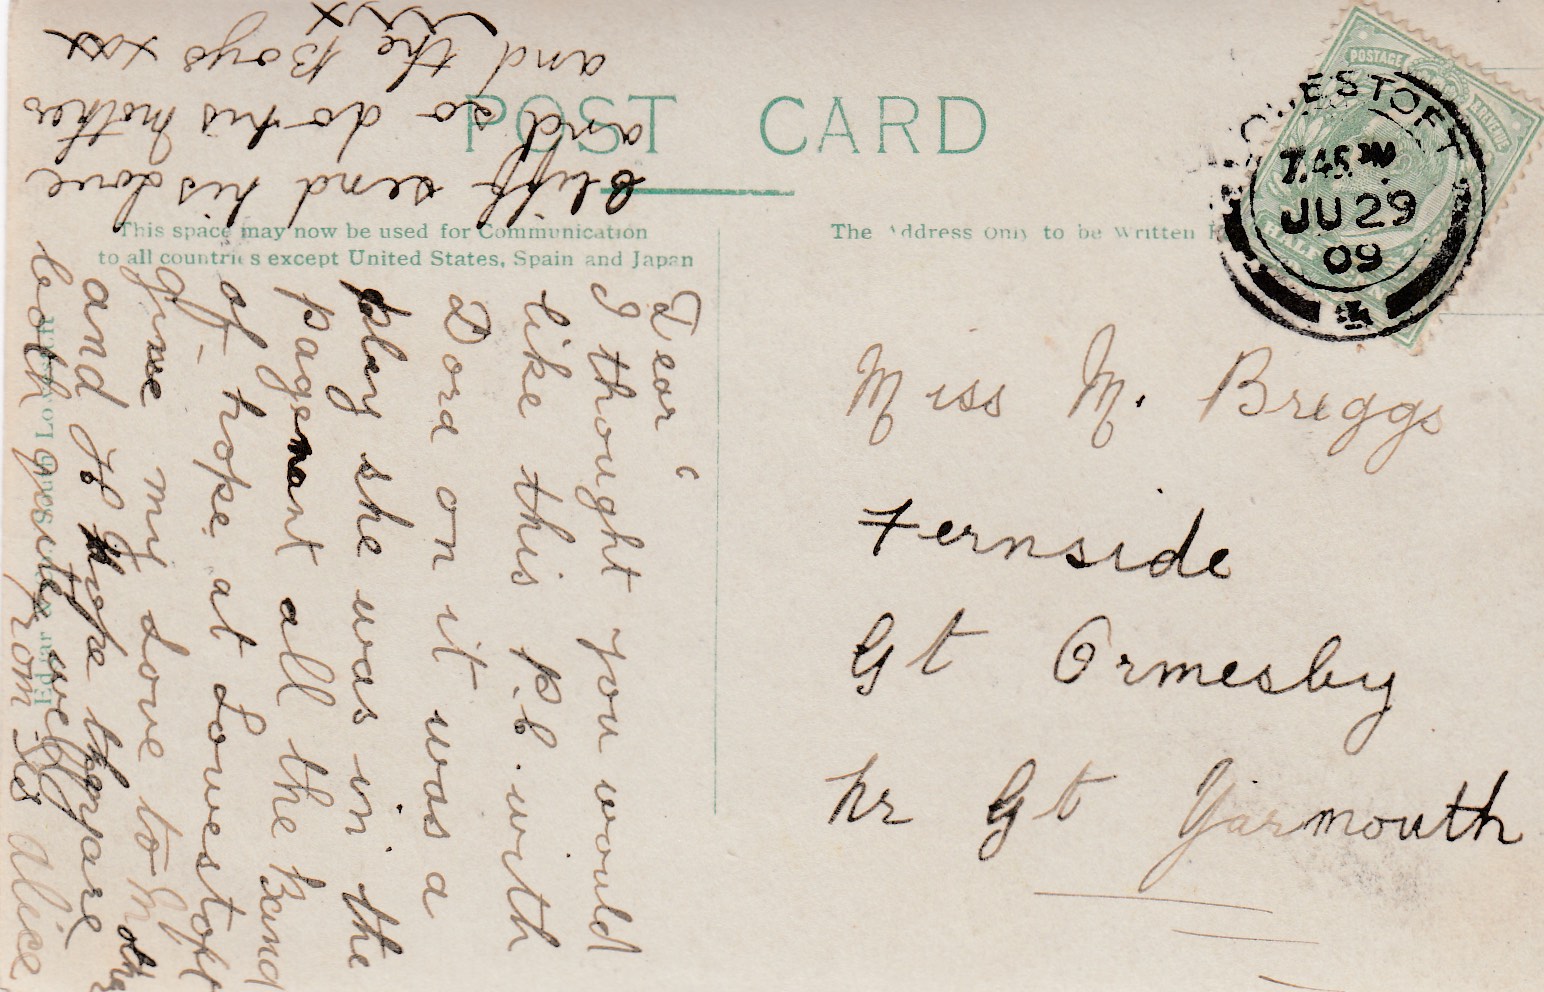 POST CARD
This space may now be used for Communication
to all countries except United States, Spain and Japan
The Address only to be Written
POSTAGE
HALF
LOWESTOFT
7.45 PM
JU 29
09
Miss M. Briggs
Fernside
Gt Ormesby
nr Gt Yarmouth
Dear
I thought you would
like this p.c. with
Dora on it was a
play she was in the
pagenant all the Band
of hope at Lowestoft
give my Love to Mother
and I hope thay are
both quite well
from Sis Alice
Cliff send his Love
and so do his Mother
and the Boys xxx
xxx
South Lowestoft